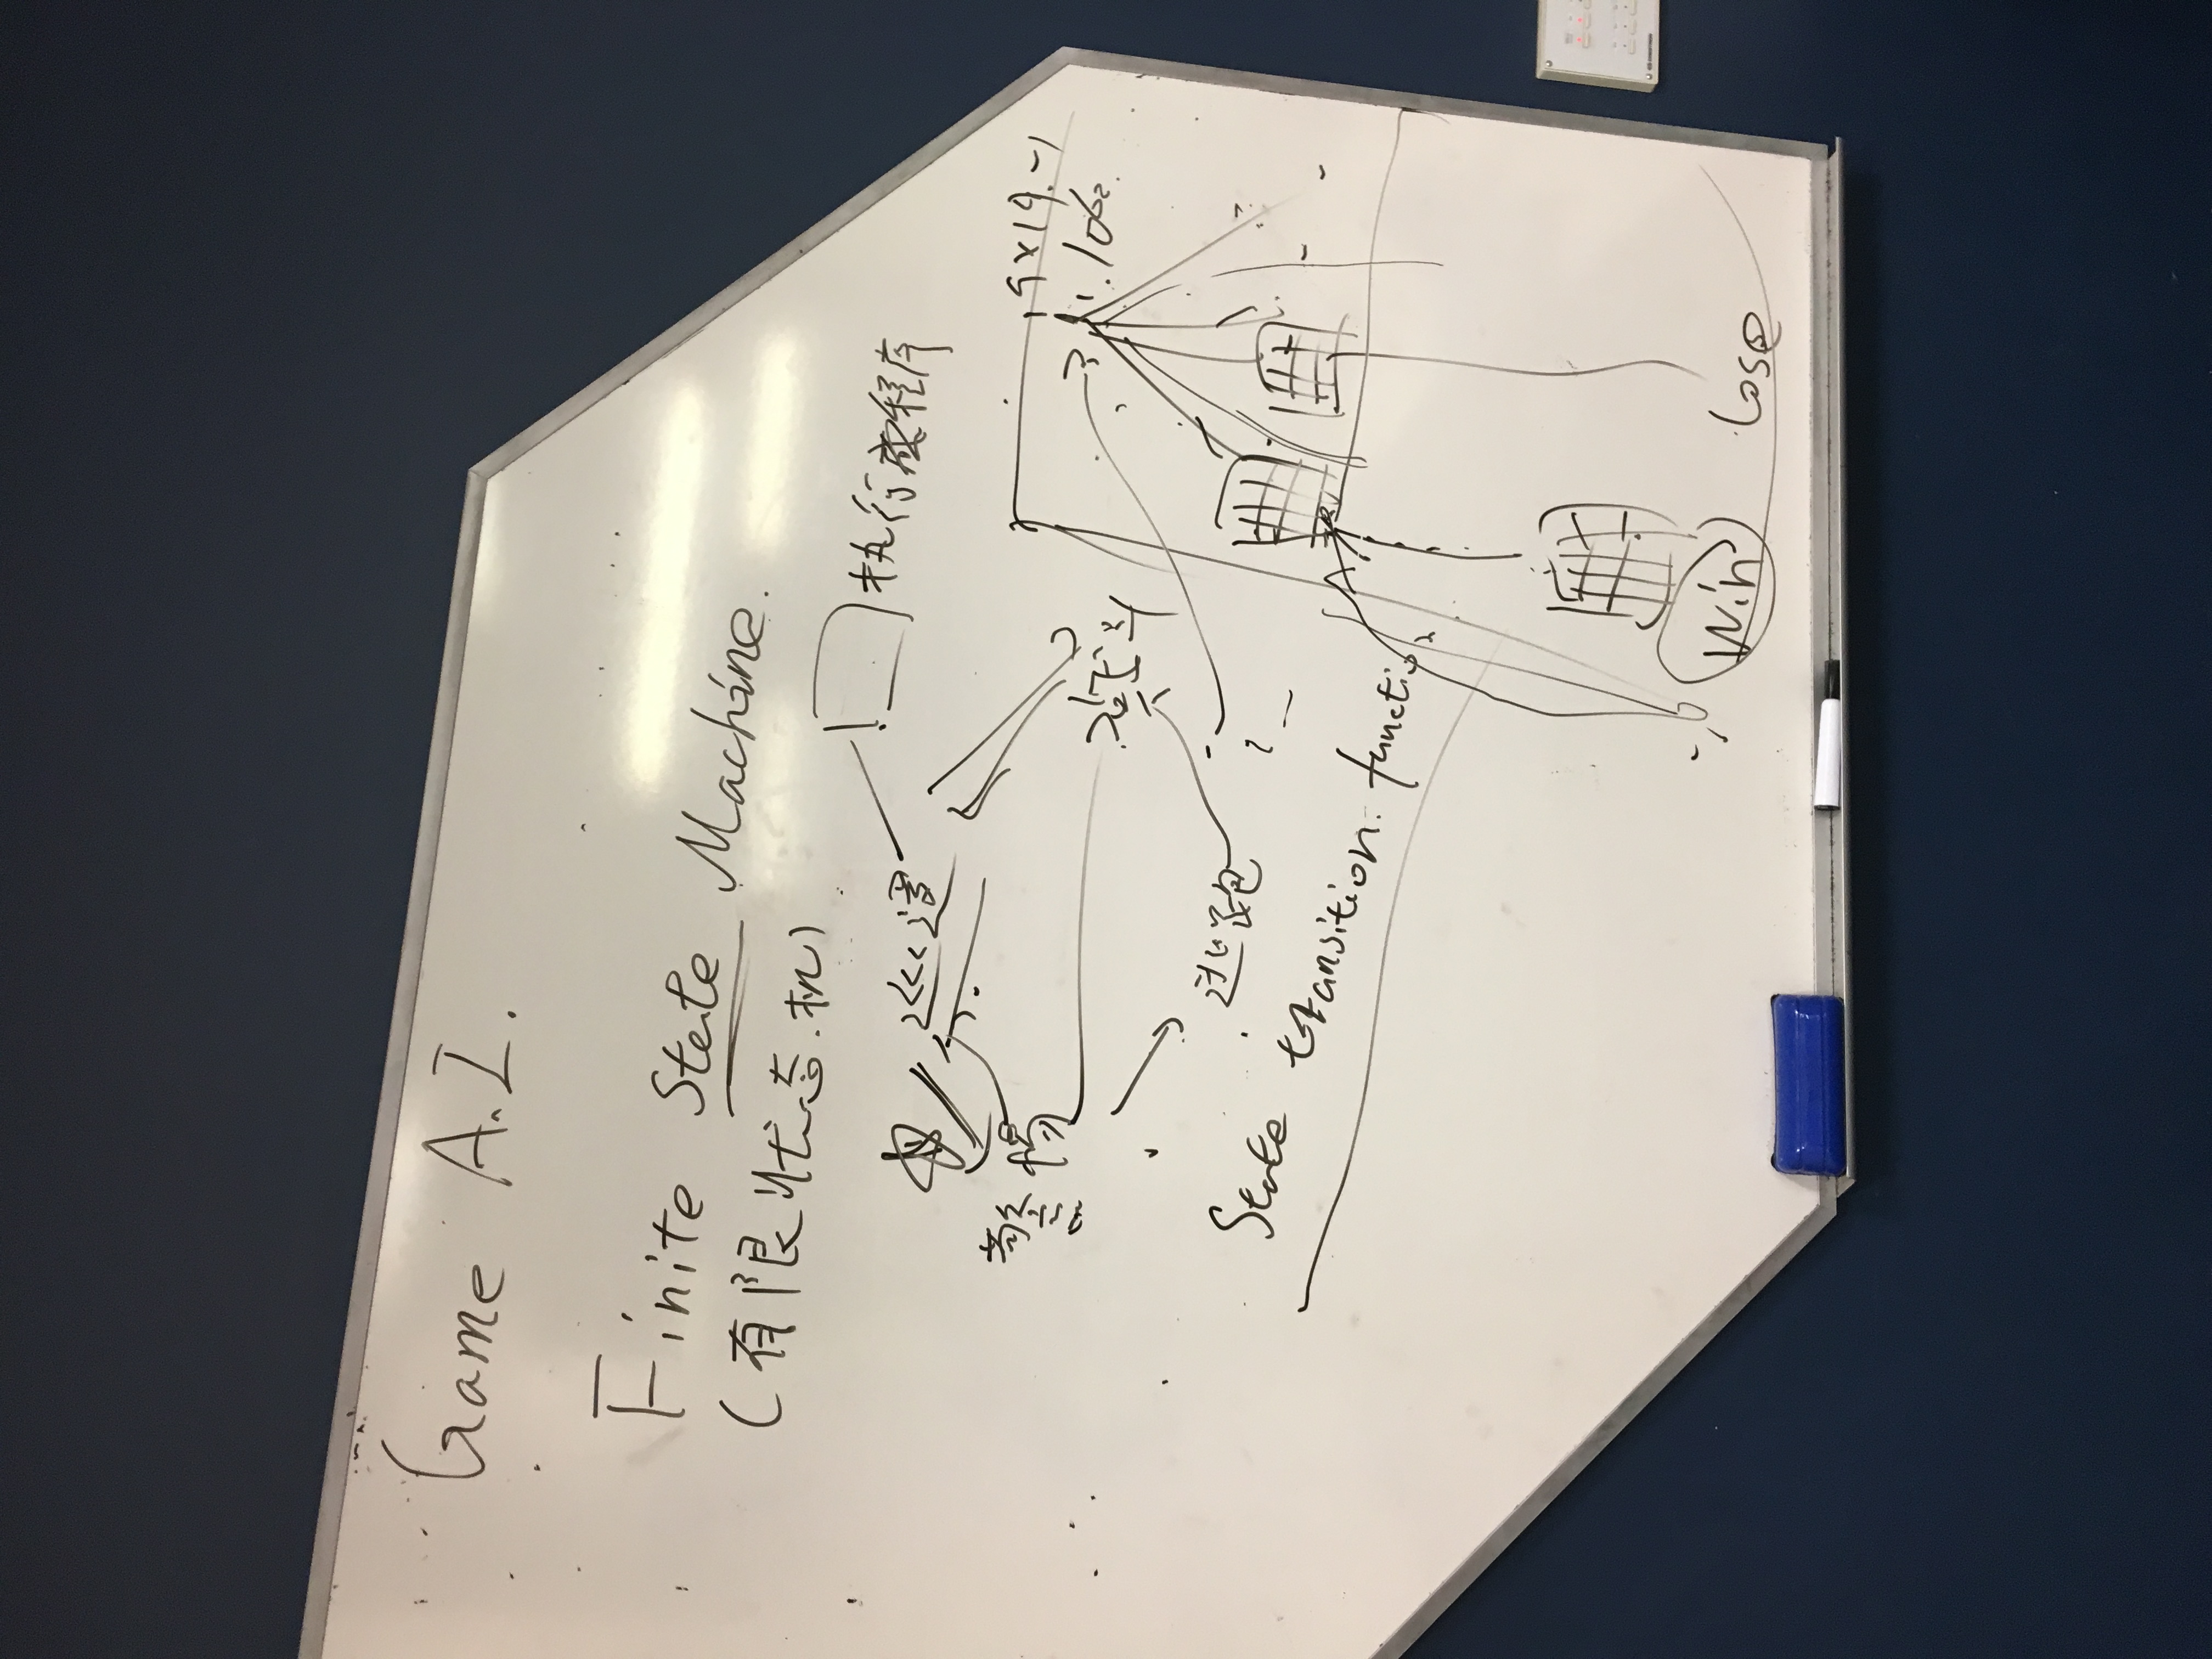 Game A.I.
Finite State Machine.
(有限状态机)
巡逻
执行 程序
警惕
战斗
逃跑
State transition function
Win
lose